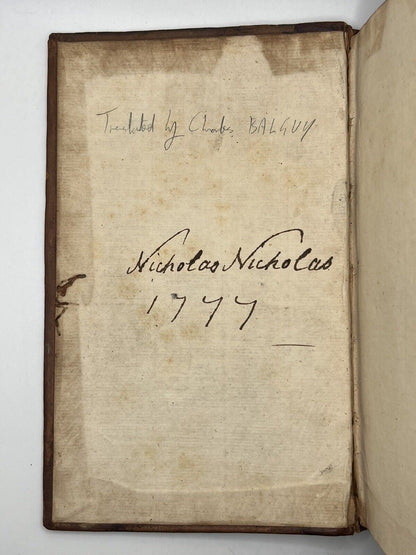 Translated by Charles BALGUY
Nicholas Nicholas
1777